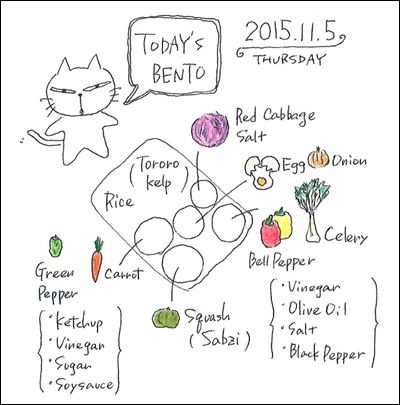 TODAY'S
BENTO
2015.11.5
THURSDAY
Red Cabbage
Salt
(Tororo
kelp)
Rice
Egg
Onion
Celery
Bell Pepper
Green
Pepper
Carrot
Squash
(Sabzi)
・Ketchup
・Vinegar
・Sugar
・Soysauce
・Vinegar
・Olive Oil
・Salt
・Black Pepper